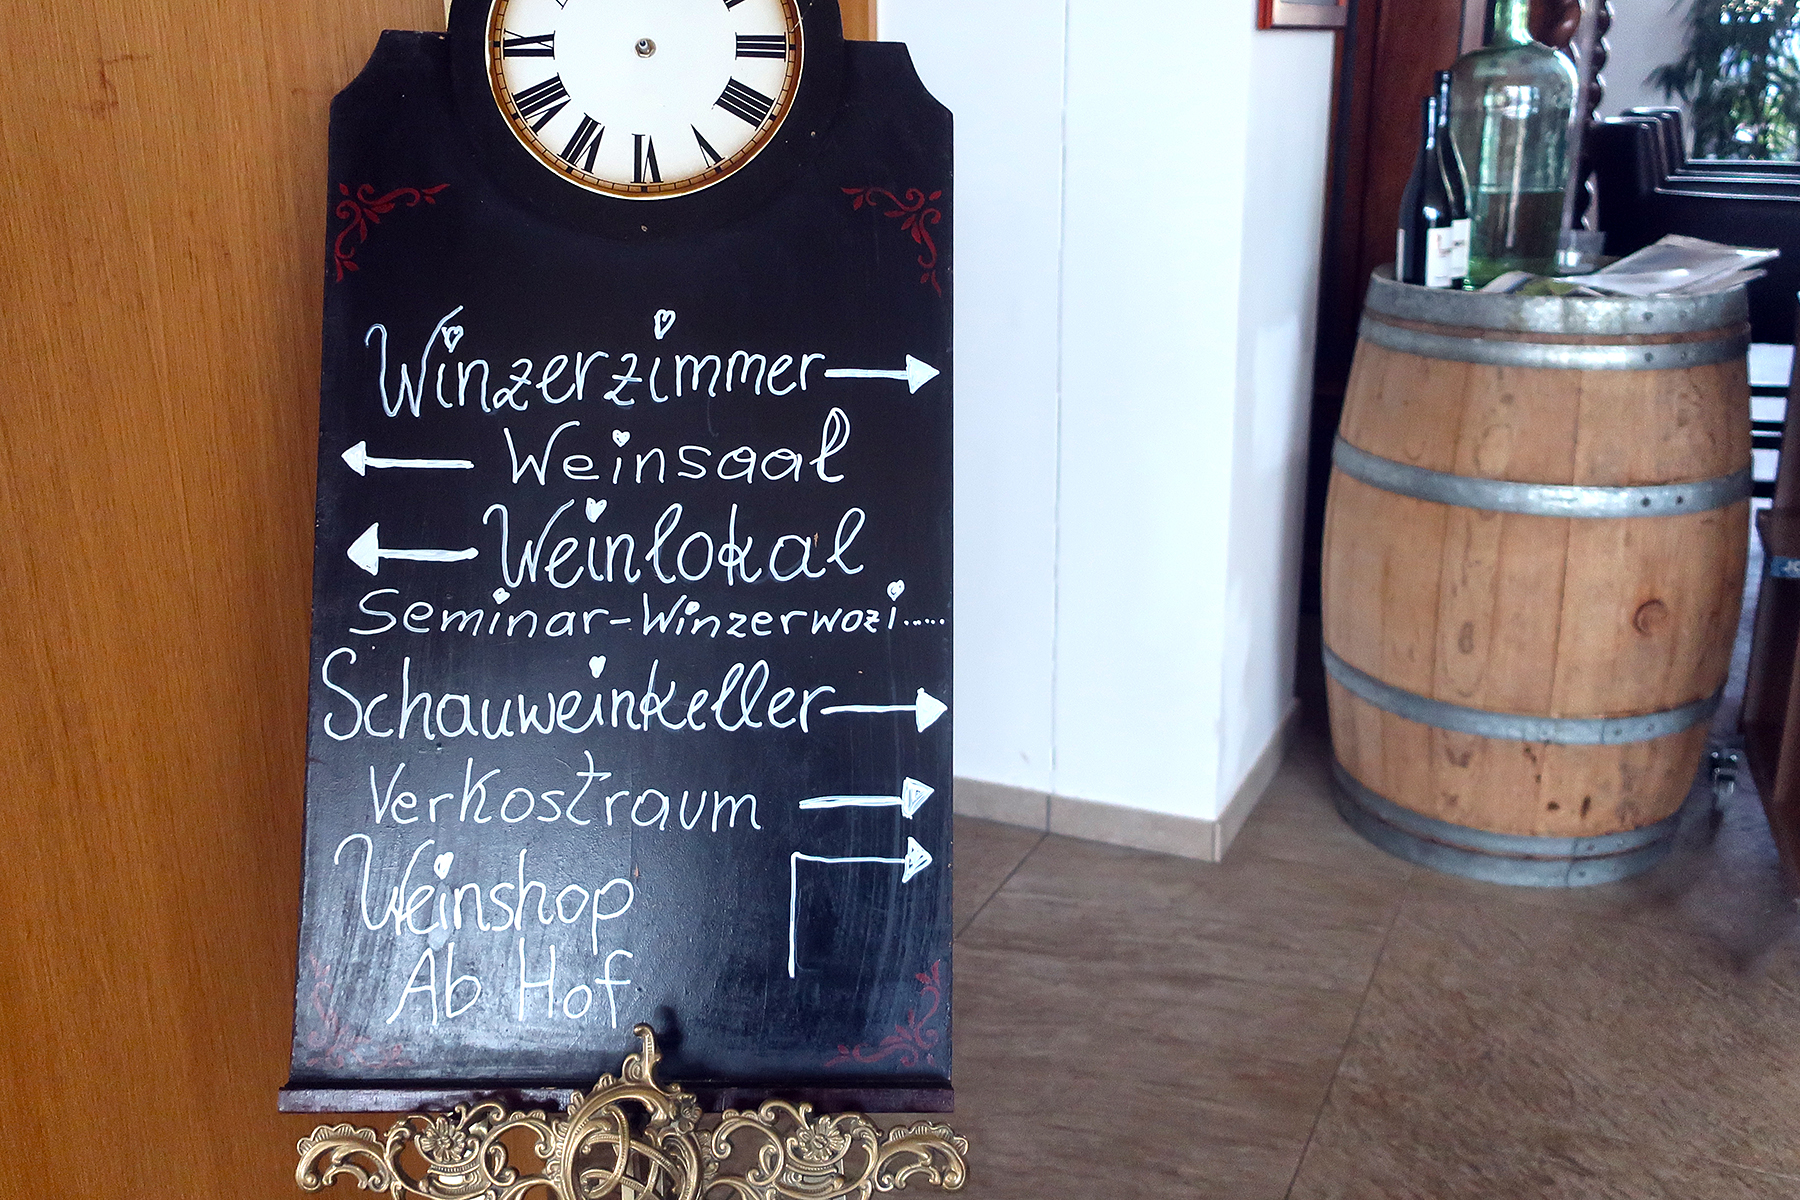 III IIII V VI VII VIII IX
Winzerzimmer →
← Weinsaal
← Weinlokal
Seminar-Winzerwozi.....
Schauweinkeller →
Verkostraum →
Weinshop
Ab Hof